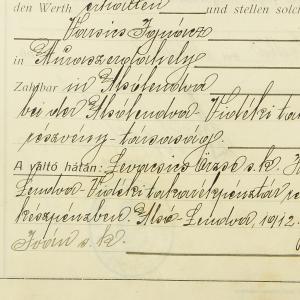 den Werth erhalten und stellen solc
Vasics Ignácz
in Muraszerdahely
Zahlbar in Alsólendva
bei der Alsólendva-Vidéki tak
részvény-társaság
A váltó hátán: s. k.
Lendva-Vidéki takarékpénztár ré
készpénzben, Alsó-Lendva, 1912.
Iván s. k.